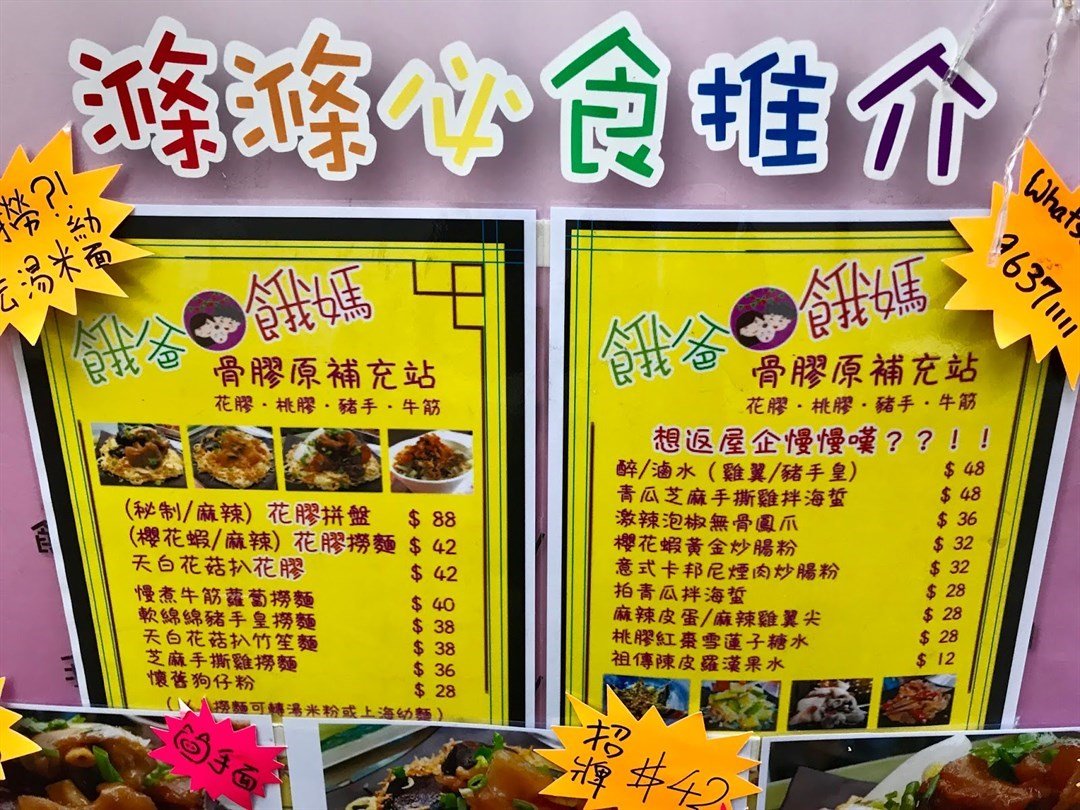 滌滌必食推介
撈?!
湯米 幼面
Whats
9637 1111
餓爸 餓媽
骨膠原補充站
花膠·桃膠·豬手·牛筋
(秘制/麻辣) 花膠拼盤 $ 88
(櫻花蝦/麻辣) 花膠撈麵 $ 42
天白花菇扒花膠 $ 42
慢煮牛筋蘿蔔撈麵 $ 40
軟綿綿豬手皇撈麵 $ 38
天白花菇扒竹笙麵 $ 38
芝麻手撕雞撈麵 $ 36
懷舊狗仔粉 $ 28
撈麵可轉湯米粉或上海幼麵)
餓爸 餓媽
骨膠原補充站
花膠·桃膠·豬手·牛筋
想返屋企慢慢嘆??!!
醉/滷水(雞翼/豬手皇) $ 48
青瓜芝麻手撕雞拌海蜇 $ 48
激辣泡椒無骨鳳爪 $ 36
櫻花蝦黃金炒腸粉 $ 32
意式卡邦尼煙肉炒腸粉 $ 32
拍青瓜拌海蜇 $ 28
麻辣皮蛋/麻辣雞翼尖 $ 28
桃膠紅棗雪蓮子糖水 $ 28
祖傳陳皮羅漢果水 $ 12
手面
招牌 $42